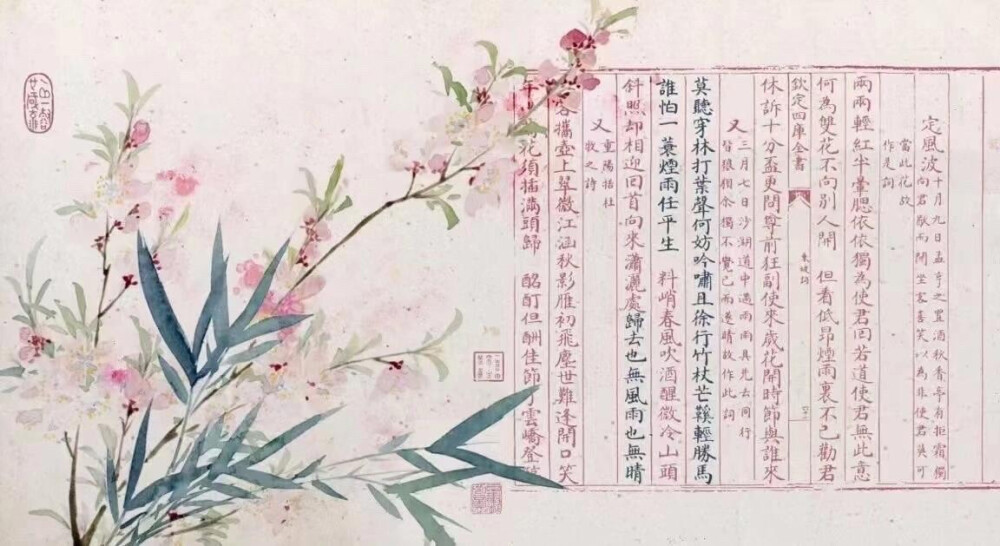 定風波 十月九日孟亨之置酒秋香亭有拒霜獨
向君猷而開坐客喜笑以為非使君莫可
當此花故
作是詞
兩兩輕紅半暈腮依依獨為使君回若道使君無此意
何為雙花不向別人開 但看低昂煙雨裏不已勸君
欽定四庫全書 東坡詞
休訴十分盃更問尊前狂副使來歲花開時節與誰來
又 三月七日沙湖道中遇雨雨具先去同行
皆狼狽余獨不覺已而遂晴故作此詞
莫聽穿林打葉聲何妨吟嘯且徐行竹杖芒鞵輕勝馬
誰怕一蓑煙雨任平生 料峭春風吹酒醒微冷山頭
斜照却相迎回首向來瀟灑處歸去也無風雨也無晴
又 重陽括杜
牧之詩
客攜壺上翠微江涵秋影雁初飛塵世難逢開口笑
花須插滿頭歸 酩酊但酬佳節了雲嶠登